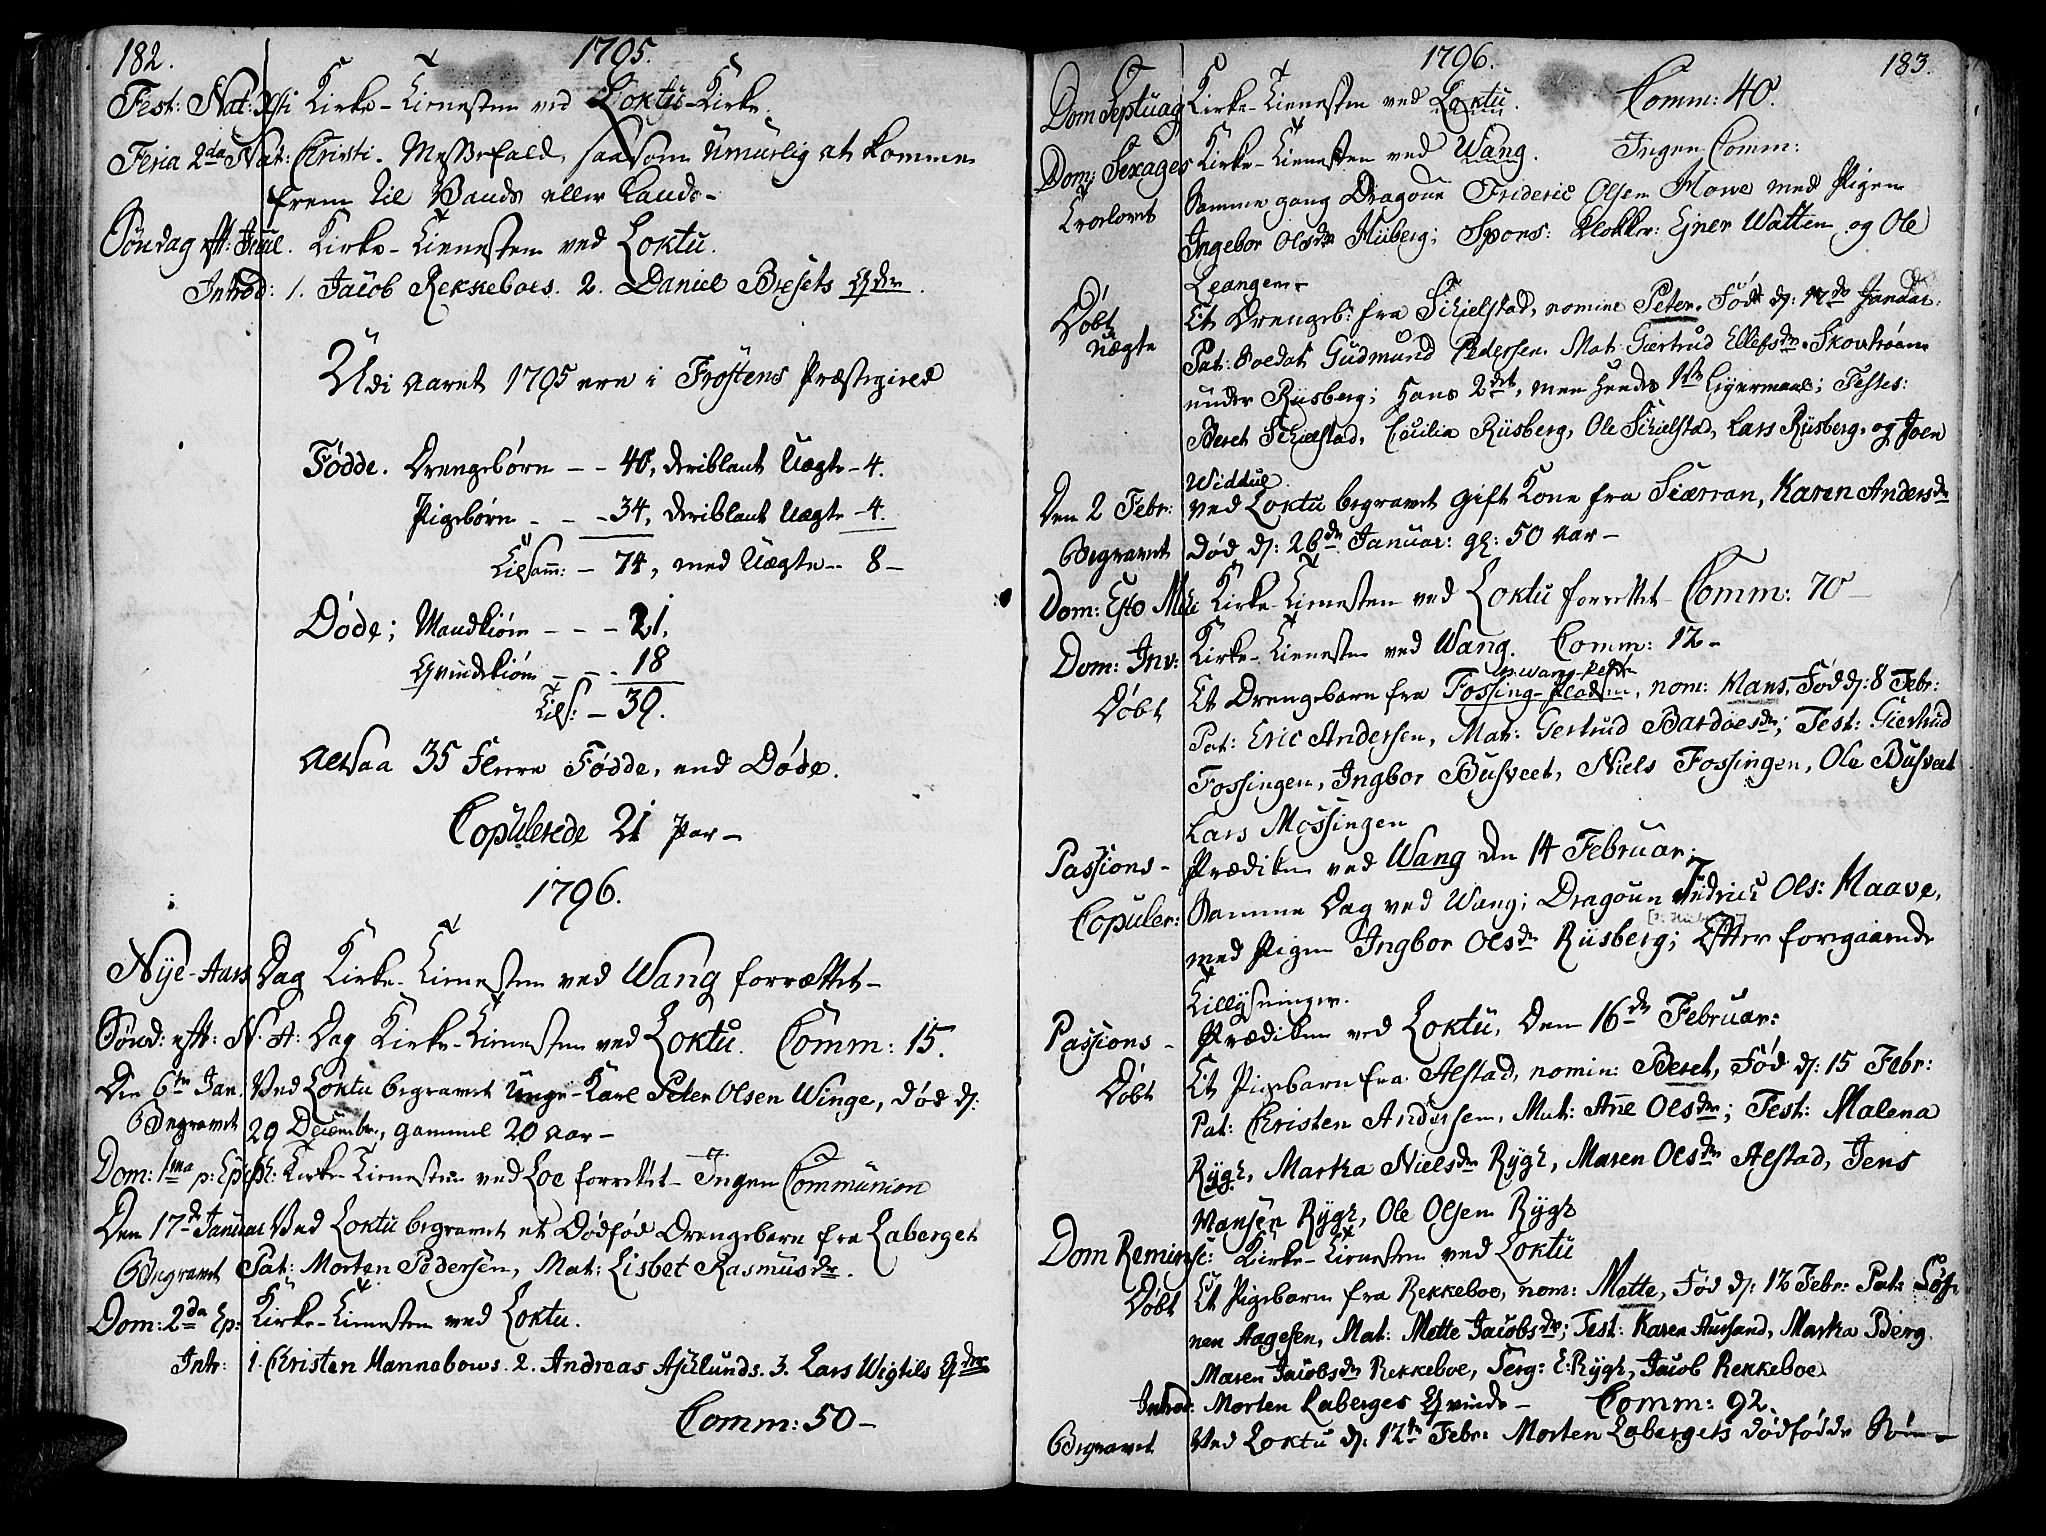 182.
1795.
Fest: Nat: Xsti Kirke-Tienesten ved Loktu-Kirke.
Feria 2da Nat: Christi. Messefald, saasom Umuelig at komme
frem til Vands eller Lands-
Søndag eft: Juul. Kirke-Tienesten ved Loktu.
Introd: 1. Jacob Rekkeboes. 2. Daniel Bresets Qvdr.
Udi Aaret 1795 ere i Frostens Præstegield
Fødde. Drengebørn -- 40, deriblant Uægte - 4.
Pigebørn - - - 34, deriblant Uægte - 4.
Tilsamm: - 74, med Uægte -- 8 -
Døde; Mandkiøn - - - 21,
Qvindekiøn - - - 18
Tils: - 39.
Altsaa 35 Flere Fødde, end Døde.
Copulerede 21 Par -
1796.
Nye-Aars Dag Kirke-Tienesten ved Wang forrættet -
Sønd: eft: N. A: Dag Kirke-Tienesten ved Loktu. Comm: 15.
Den 6te Jan: Ved Loktu begravet Unge-Karl Peter Olsen Winge, død d:
Begravet 29 Decembr., gammel 20 Aar -
Dom: 1ma p: Epiph: Kirke-Tienesten ved Loc forrettet - Ingen Communion
Den 17de Januar Ved Loktu begravet et Dødfød Drengebarn fra Laberget
Begravet Pat: Morten Pedersen, Mat: Lisbet Rasmusdr.
Dom: 2da Ep: Kirke-Tienesten ved Loktu.
Intr: 1. Christen Hannebows. 2. Andreas Asklunds. 3. Lars Wigtils Qvdre
Comm: 50 -
1796.
183.
Dom Septuag Kirke-Tienesten ved Loktu. Comm: 40.
Dom: Sexages Kirke-Tienesten ved Wang. Ingen Comm:
Trolovet Samme gang Dragoun Frideric Olsen Howe med Pigen
Ingebor Olsdr Hüberg; Spons: Klokker: Ejner Watten og Ole
Leangen -
Døbt Et Drengeb: fra Schielstad, nomine Peter. Fød d: 17de Januar:
Uægte Pat: Soldat Gudmund Pedersen. Mat: Gertrud Ellefsdr. Skovhroen
under Rüsberg; Hans 2det, men Hendes 1ste Leyermaal; Testes:
Beret Schielstad, Cecilia Rüsberg, Ole Schielstad, Lars Rüsberg, og Joen
Widdul.
Den 2 Febr: ved Loktu begravet gift Kone fra Siærran, Karen Andersdr
Begravet død d: 26de Januar: gl: 50 Aar -
Dom: Esto Mihi Kirke-Tienesten ved Loktu forrettet - Comm: 70 -
Dom: Inv: Kirke-Tienesten ved Wang. Comm: 12 -
Døbt Et Drengebarn fra Fossing-Pladsen, nom: Hans, Fød d: 8 Febr:
Pat: Eric Andersen, Mat: Gertrud Bardoesdr; Test: Giertrud
Fossingen, Ingbor Busveet, Niels Fossingen, Ole Busveet
Lars Mossingen
Passions- Prædiken ved Wang den 14 Februar.
Copuler: Samme Dag ved Wang; Dragoun Fridrics Ols: Haave,
med Pigen Ingbor Olsdr Rüsberg; Efter foregaaende
Tillysninger.
Passions- Prædiken ved Loktu, den 16de Februar:
Døbt Et Pigebarn fra Alstad, nomine: Beret, Fød d: 15 Febr:
Pat: Christen Andersen, Mat: Ane Olsdr; Test: Malena
Rygh, Marta Nielsdr Rygh, Maren Olsdr Alstad, Jens
Hansen Rygh, Ole Olsen Rygh
Dom Reminisc: Kirke-Tienesten ved Loktu
Døbt Et Pigebarn fra Rekkeboe, nom: Mette, Fød d: 12 Febr: Pat:
nen Aagesen, Mat: Mette Jacobsdr; Test: Karen Aursand, Marta Berg.
Maren Jacobsdr Rekkeboe, Serg: E: Rygh, Jacob Rekkeboe
Introd: Morten Laberges Qvinde - Comm: 92.
Begravet Ved Loktu d: 12te Febr: Morten Labergets dødfødde Søn -